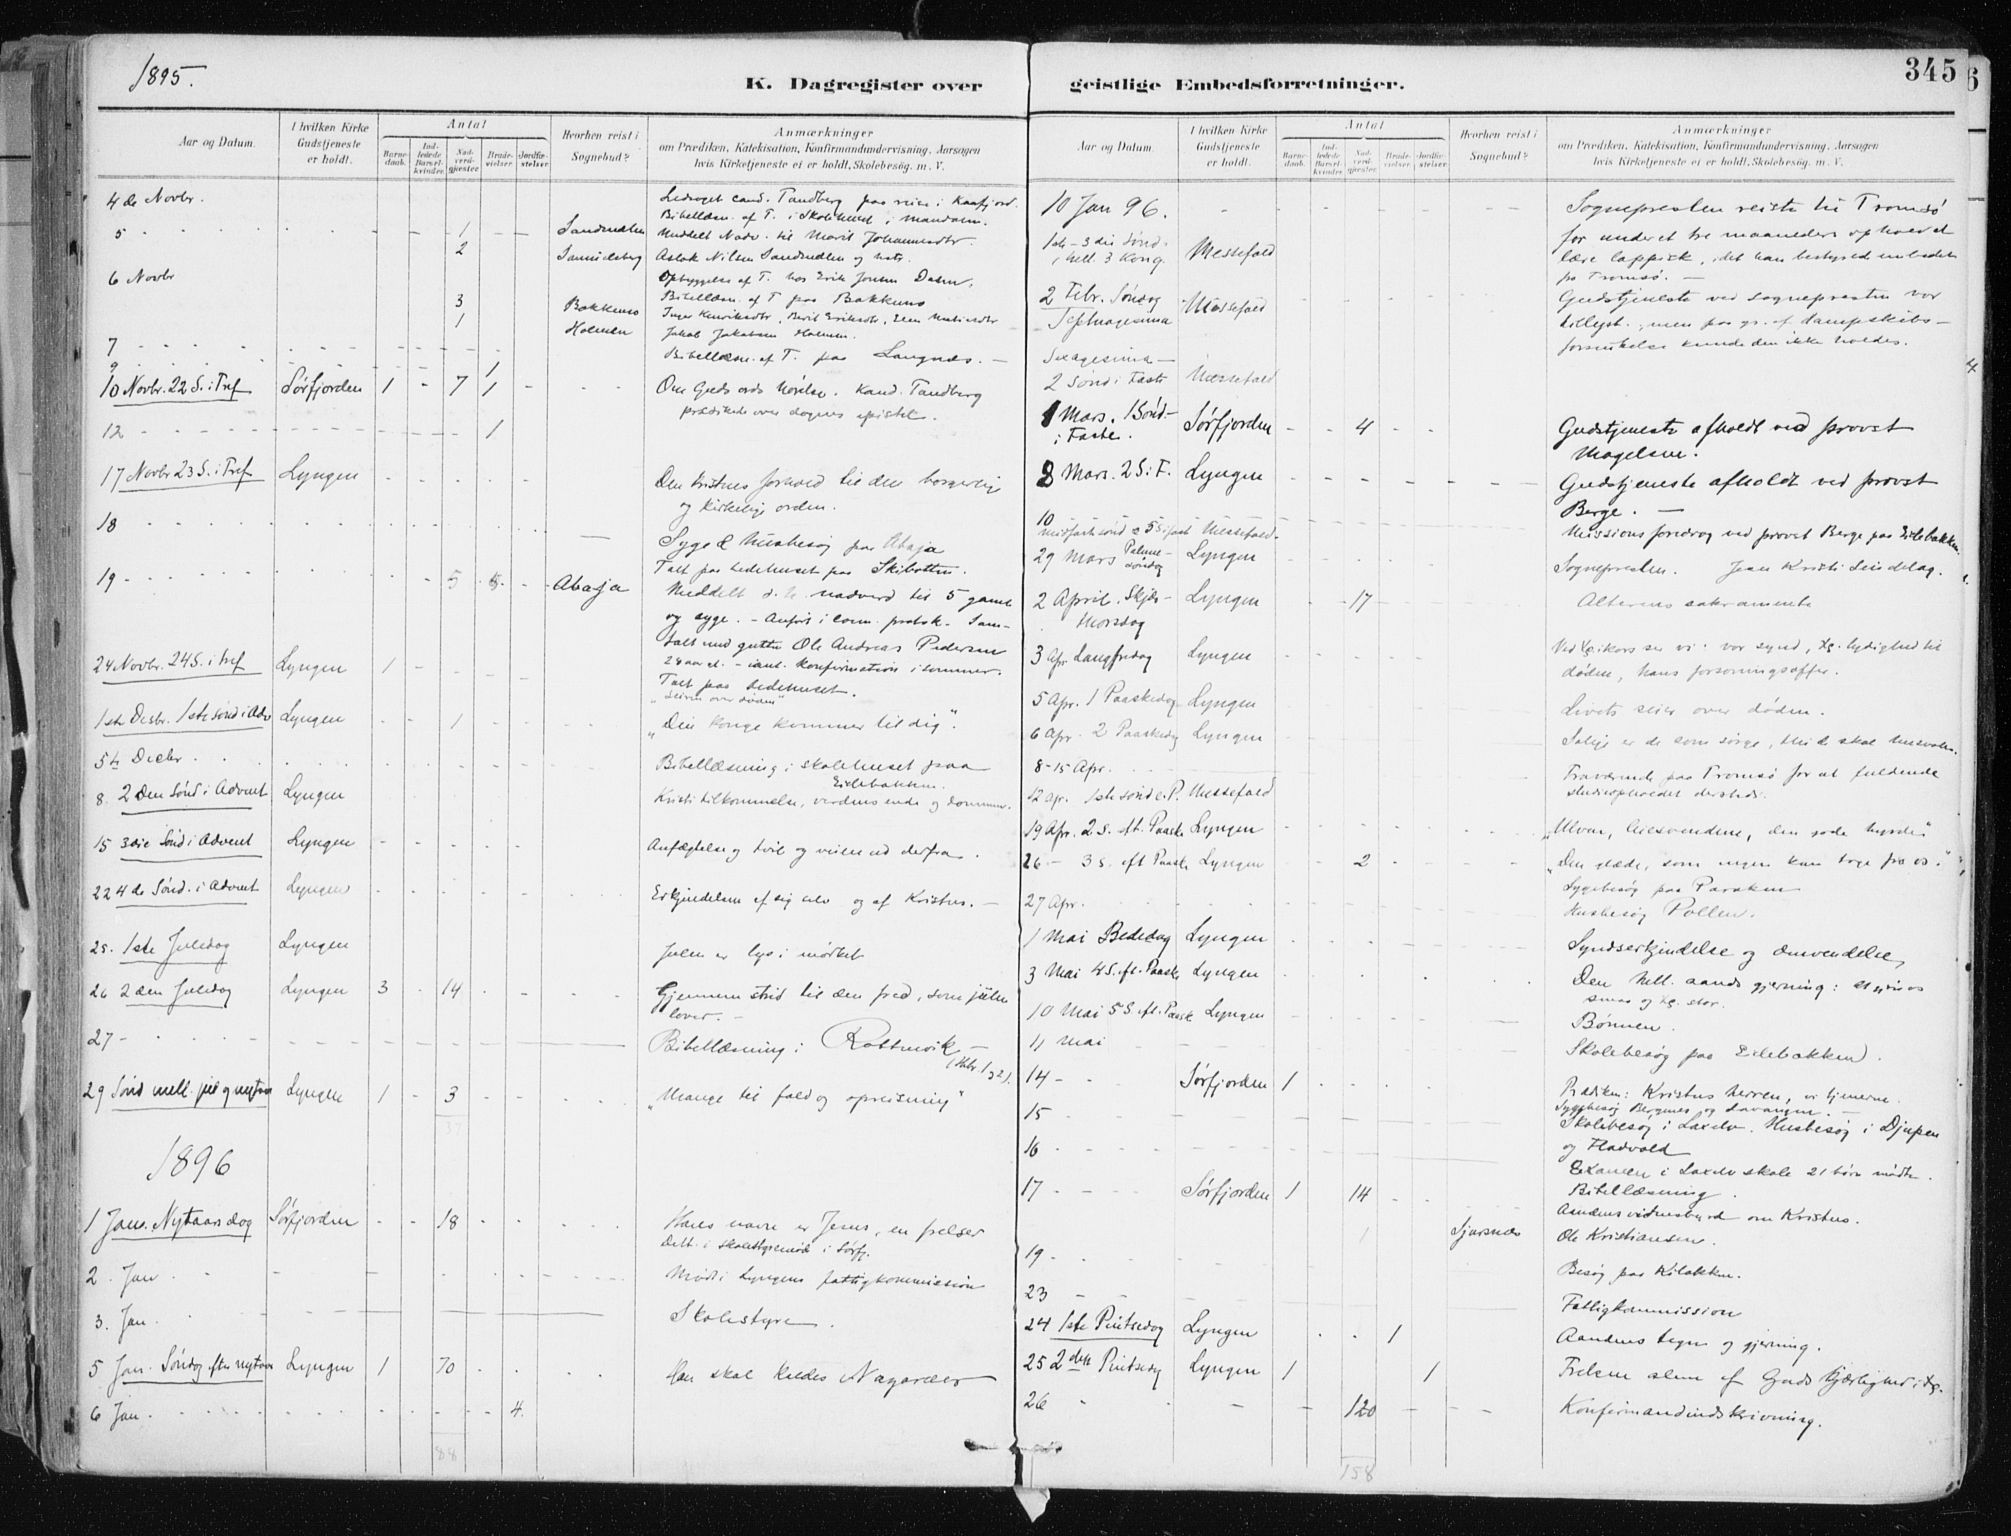 1895.
K. Dagregister over
Aar og Datum.
I hvilken Kirke Gudstjeneste er holdt.
Antal
Barnedaab.
Indledede Barselkvinder.
Nadverdgjester.
Brudevielser.
Jordfæstelser.
Hvorhen reist i Sognebud?
Anmærkninger
om Prædiken, Katekisation, Konfirmandundervisning, Aarsagen
hvis Kirketjeneste ei er holdt, Skolebesøg, m. V.
4de Novbr. Ledsaget cand. Tandberg paa reise i Kaafjord.
Bibellæsn. af T. i Skolehuset i Mandalen.
5 1 Sandnæslen Meddelt Nadv. til Marit Johannesdtr.
2 Samuelsberg Aslak Nilsen Sandnæslen og
6 Novbr Opbyggelse af T. hos Erik Jensen Dalen.
Bibellæsn. af T. paa Bakkens
3 Bakkens Inger Henriksdtr, Berit Eriksdtr, Elen
1 Holmen Jakob Jakobsen Holmen.
7 Bibellæsn. af T. paa Langnæs. —
9 1
10 Novbr. 22 S. i Tref Sørfjorden 1 - 7 1 Om Guds ords hørelse. Kand. Tandberg
prædikede over dagens epistel.
12 1
17 Novbr 23 S. i Tref Lyngen Den kristnes forhold til den borgerlige
og kirkelige orden.
18 Syge & Husbesøg paa Abaja
Talt paa bedehuset paa Skibotten.
19 5 Abaja Meddelt d. h. nadverd til 5 gamle
og syge. - Anført i com. protok. Sam-
talt med gutten Ole Andreas Pedersen
24 Novbr. 24 S. i Tref Lyngen 1 24 aar gl. - konfirmation i sommer.
Talt paa bedehuset.
"Seiren over døden"
1ste Desbr. 1ste sønd i Adv Lyngen 1 "Din konge kommer til dig".
5te Decbr Bibellæsning i skolehuset paa
Eidebakken.
8. 2den Sønd i Advent Lyngen Kristi tilkommelse, verdens ende og dommen.
15 3die Sønd i Advent Lyngen Anfægtelse og tvil og veien ud derfra.
22 4de Sønd. i Advent Lyngen Erkjendelsen af sig selv og af Kristus. —
25. 1ste Juledag Lyngen Julen er lys i mørket
26 2den Juledag Lyngen 3 - 14 Gjennem strid til den fred, som julen
lover. —
27 Bibellæsning i Rottenvik —
29 Sønd mell. jul og nytaar Lyngen 1 - 3 "Mange til fald og opreisning"
37
1896
1 Jan. Nytaarsdag Sørfjorden 18 Hans navn er Jesus, en frelser
Delt. i skolestyremøde i Sørfj.
2. Jan. Møde i Lyngens fattigkommission
3. Jan. Skolestyre.
5 Jan. Søndag efter nytaar Lyngen 1 70 Han skal kaldes Nazaræer
6 Jan. 4.
88
345
geistlige Embedsforretninger.
Aar og Datum.
I hvilken Kirke Gudstjeneste er holdt.
Antal
Barnedaab.
Indledede Barselkvinder.
Nadverdgjester.
Brudevielser.
Jordfæstelser.
Hvorhen reist i Sognebud?
Anmærkninger
om Prædiken, Katekisation, Konfirmandundervisning, Aarsagen
hvis Kirketjeneste ei er holdt, Skolebesøg, m. V.
10 Jan 96. Sognepresten reiste til Tromsø
for under et tre maaneders ophold at
1ste - 3die Sønd. i hell. 3 Kong. Messefald lære lappisk, idet han bestyred embedet
fra Tromsø. —
2 Febr. Søndag Septuagesima Messefald Gudstjeneste ved sognepresten var
tillyst, men paa gr. af dampskibs-
forsinkelse kunde den ikke holdes.
Sexagesima —
2 Sønd i Faste Messefald
1 Mars. 1 Sønd. i Faste. Sørfjorden 4 Gudstjeneste afholdt ved provst
Magelsen.
8 Mars. 2 S. i F. Lyngen Gudstjeneste afholdt ved provst
Berge. —
10 Missionsforedrag ved provst Berge paa Eidebakken.
Midfastesønd & 5 S i fast Messefald.
29 Mars Palmesøndag Lyngen Sognepresten. Jesu Kristi Sindelag.
2 April. Skjærtorsdag Lyngen 17 Alterens sakramente
3 Apr Langfredag Lyngen Ved Xi kors ser vi: vor synd, Xs lydighed til
døden, hans forsoningsoffer.
5 Apr. 1 Paaskedag Lyngen Livets seier over døden.
6 Apr. 2 Paaskedag Lyngen Salige er de som sørge, thi de skal husvales.
8-15 Apr. Fraværende paa Tromsø for at fuldende
studieopholdet dersteds.
12 apr. 1ste sønd e. P. Messefald
19 Apr. 2 s. eft. Paaske Lyngen "Ulven, leiesvenden, den gode hyrde"
26 - 3 S. eft Paaske Lyngen 2 "Den glæde, som ingen kan tage fra os."
Sygebesøg paa
27 Apr. Husbesøg Pollen.
1 Mai Bededag Lyngen Syndserkjendelse og omvendelse,
3 Mai 4 S. eft. Paaske Lyngen Den hell. aands gjerning: at gjøre os
smaa og Xs stor.
10 Mai 5 S. eft. Paaske Lyngen Bønnen.
11 Mai Skolebesøg paa Eidebakken.
14 Sørfjorden 1 Prædiken: Kristus herren, vi tjenerne.
15 Sygebesøg Bergnes og Lavangen. —
Skolebesøg i Laxelv. Husbesøg i Djupen
16 og Hadvold
Examen i Laxelv skole 21 børn mødte.
17 Sørfjorden 1 14 Bibellæsning.
Aandens vidnesbyrd om Kristus.
1 Sjursnæs Ole Kristiansen.
19 Besøg paa
23 Fattigkommission
24 1ste Pintsedag Lyngen 1 Aandens tegn og gjerning.
25 2den Pintsedag Lyngen 1 1 Frelsen alene af Guds kjærlighed i Xs.
26 120 Konfirmandindskrivning.
158